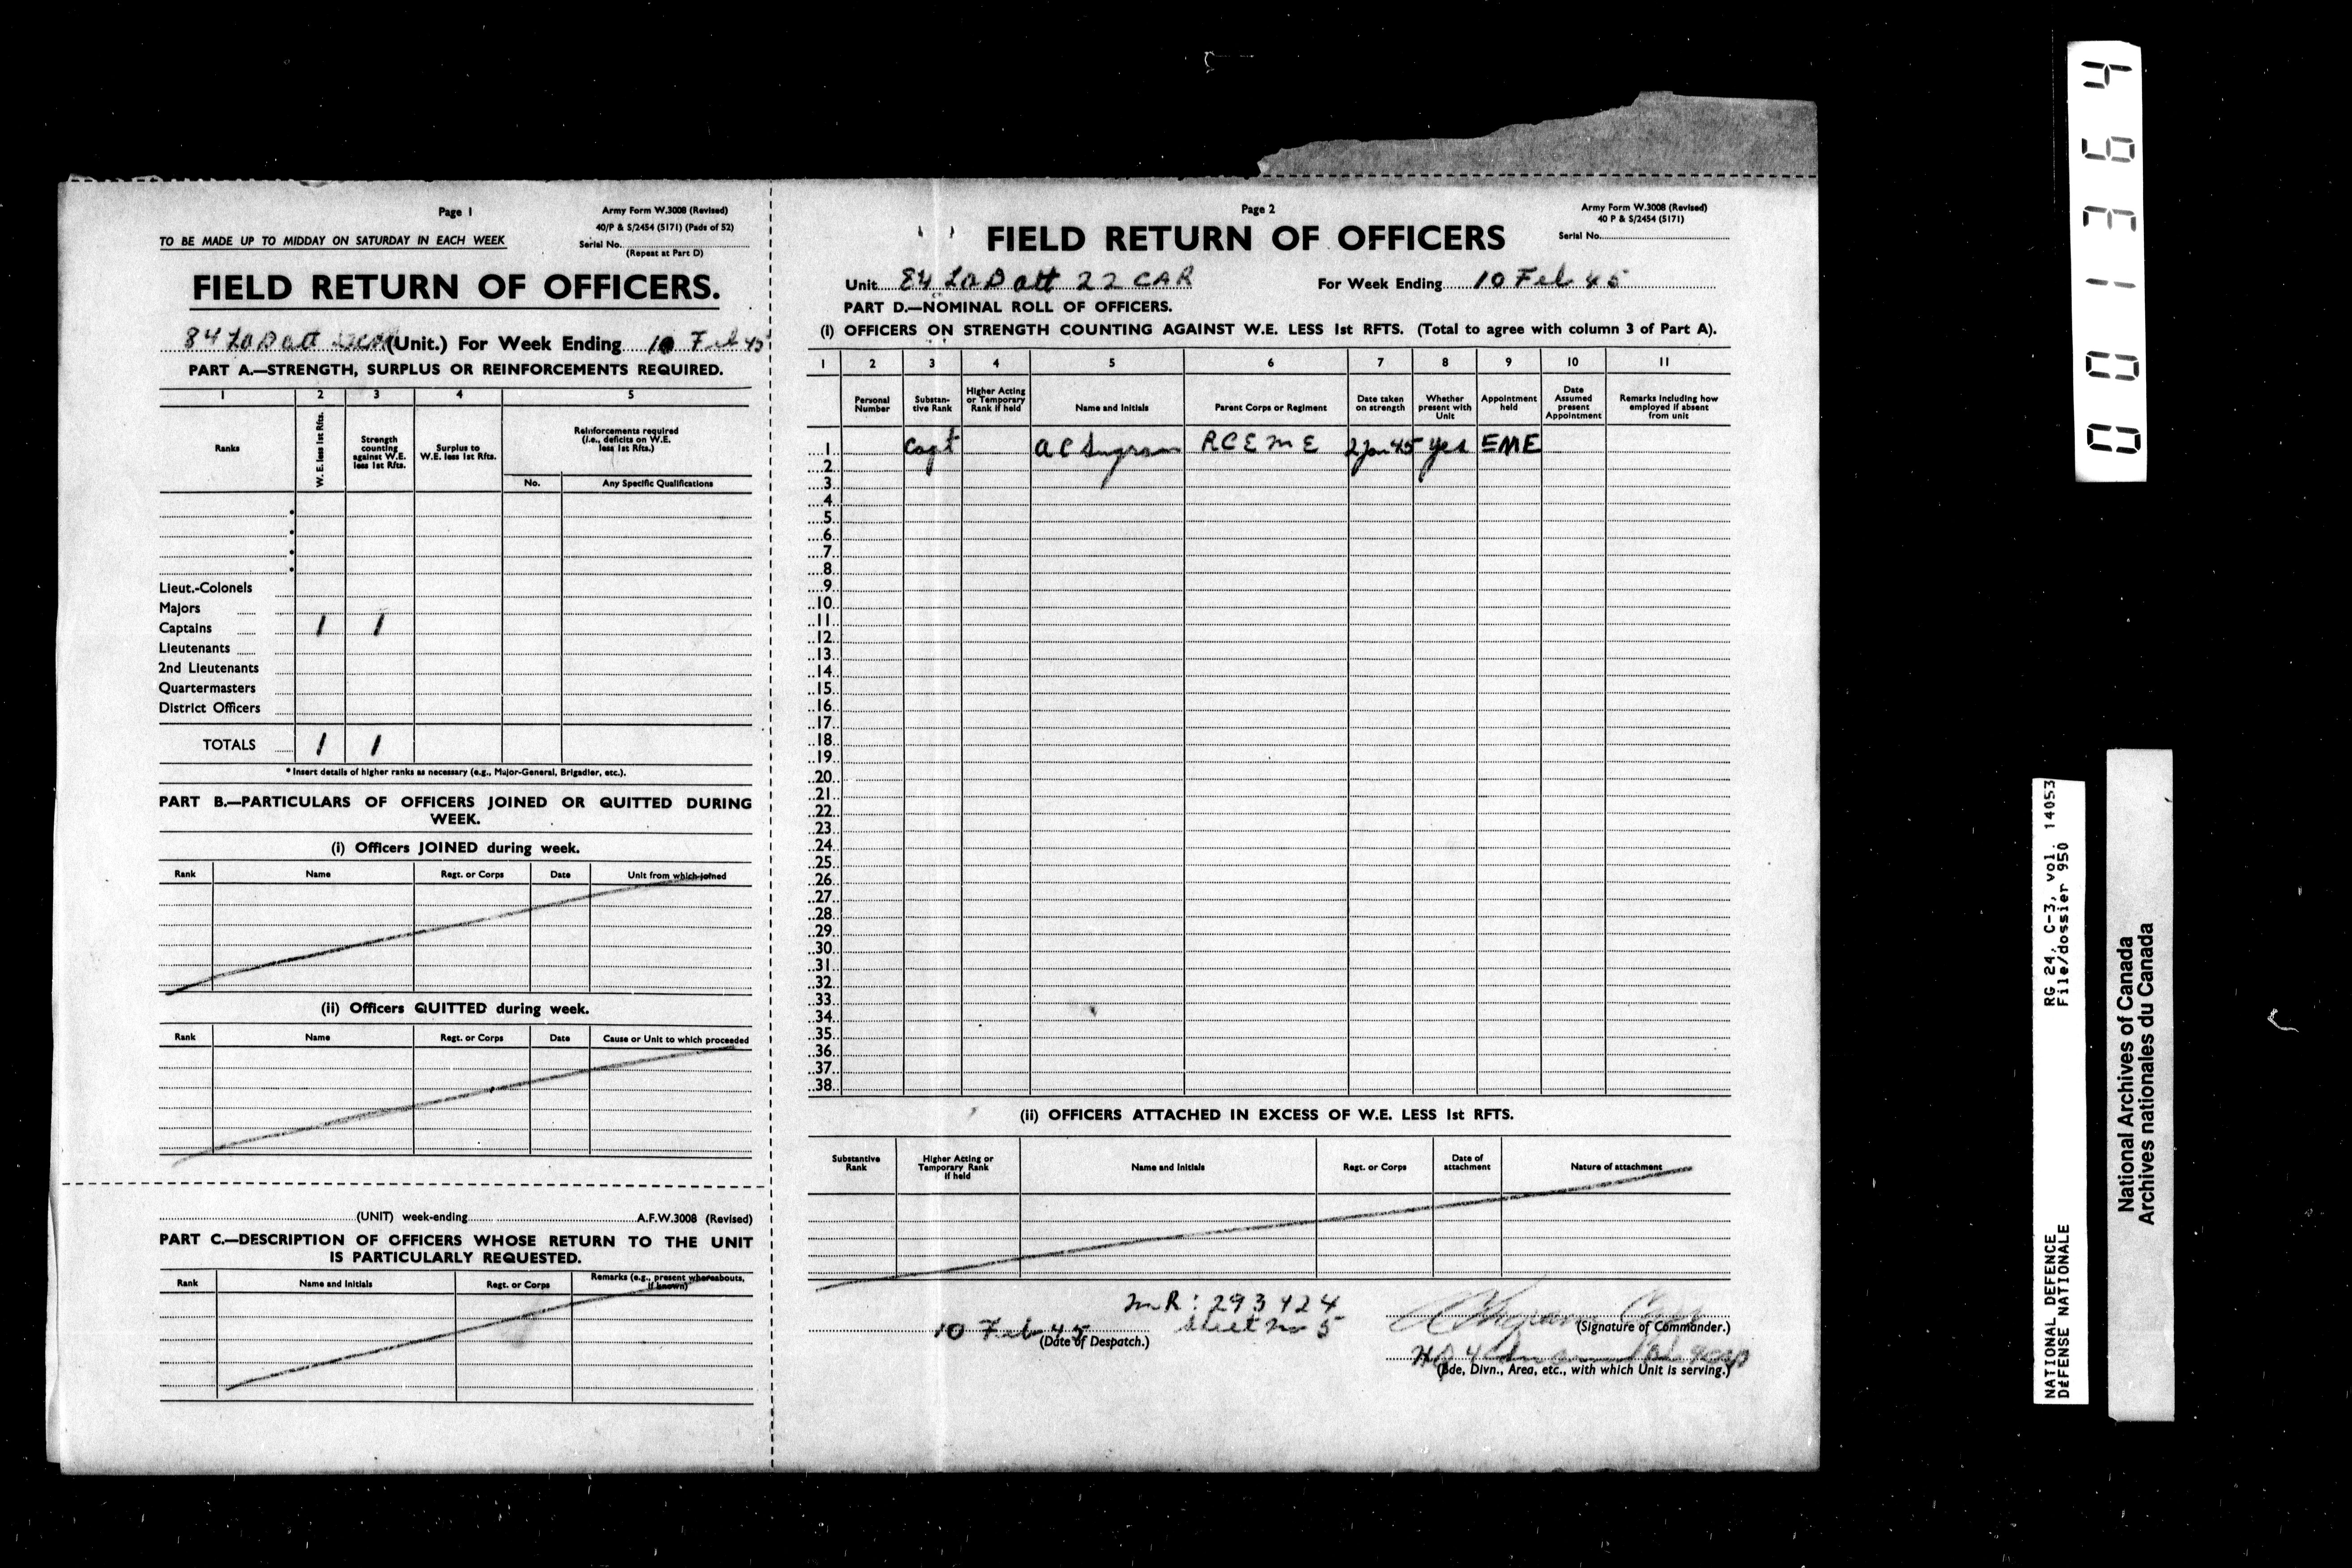 Page 1
Army Form W.3008 (Revised)
40/P & S/2454 (5171) (Pads of 52)
TO BE MADE UP TO MIDDAY ON SATURDAY IN EACH WEEK
Serial No.
(Repeat at Part D)
FIELD RETURN OF OFFICERS.
84 LAD att (Unit.) For Week Ending 10 Feb 45
PART A.—STRENGTH, SURPLUS OR REINFORCEMENTS REQUIRED.
1 2 3 4 5
Ranks
W. E. less 1st Rfts.
Strength counting against W.E. less 1st Rfts.
Surplus to W.E. less 1st Rfts.
Reinforcements required (i.e., deficits on W.E. less 1st Rfts.)
No. Any Specific Qualifications
Lieut.-Colonels
Majors
Captains 1 1
Lieutenants
2nd Lieutenants
Quartermasters
District Officers
TOTALS 1 1
* Insert details of higher ranks as necessary (e.g., Major-General, Brigadier, etc.).
PART B.—PARTICULARS OF OFFICERS JOINED OR QUITTED DURING
WEEK.
(i) Officers JOINED during week.
Rank Name Regt. or Corps Date Unit from which joined
(ii) Officers QUITTED during week.
Rank Name Regt. or Corps Date Cause or Unit to which proceeded
(UNIT) week-ending A.F.W.3008 (Revised)
PART C.—DESCRIPTION OF OFFICERS WHOSE RETURN TO THE UNIT
IS PARTICULARLY REQUESTED.
Rank Name and Initials Regt. or Corps Remarks (e.g., present whereabouts, if known)
Page 2
Army Form W.3008 (Revised)
40 P & S/2454 (5171)
Serial No.
FIELD RETURN OF OFFICERS
Unit 84 LAD att 22 CAR For Week Ending 10 Feb 45
PART D.—NOMINAL ROLL OF OFFICERS.
(i) OFFICERS ON STRENGTH COUNTING AGAINST W.E. LESS 1st RFTS. (Total to agree with column 3 of Part A).
1 2 3 4 5 6 7 8 9 10 11
Personal Number
Substantive Rank
Higher Acting or Temporary Rank if held
Name and Initials
Parent Corps or Regiment
Date taken on strength
Whether present with Unit
Appointment held
Date Assumed present Appointment
Remarks including how employed if absent from unit
1 Capt A C Ingram RCEME 2 Jan 45 yes EME
2
3
4
5
6
7
8
9
10
11
12
13
14
15
16
17
18
19
20
21
22
23
24
25
26
27
28
29
30
31
32
33
34
35
36
37
38
(ii) OFFICERS ATTACHED IN EXCESS OF W.E. LESS 1st RFTS.
Substantive Rank
Higher Acting or Temporary Rank if held
Name and Initials
Regt. or Corps
Date of attachment
Nature of attachment
M.R: 293424
Sheet no 5
10 Feb 45
(Date of Despatch.)
(Signature of Commander.)
(Bde, Divn., Area, etc., with which Unit is serving.)
001364
RG 24, C-3, vol. 14053
File/dossier 950
NATIONAL DEFENCE
DéFENSE NATIONALE
National Archives of Canada
Archives nationales du Canada